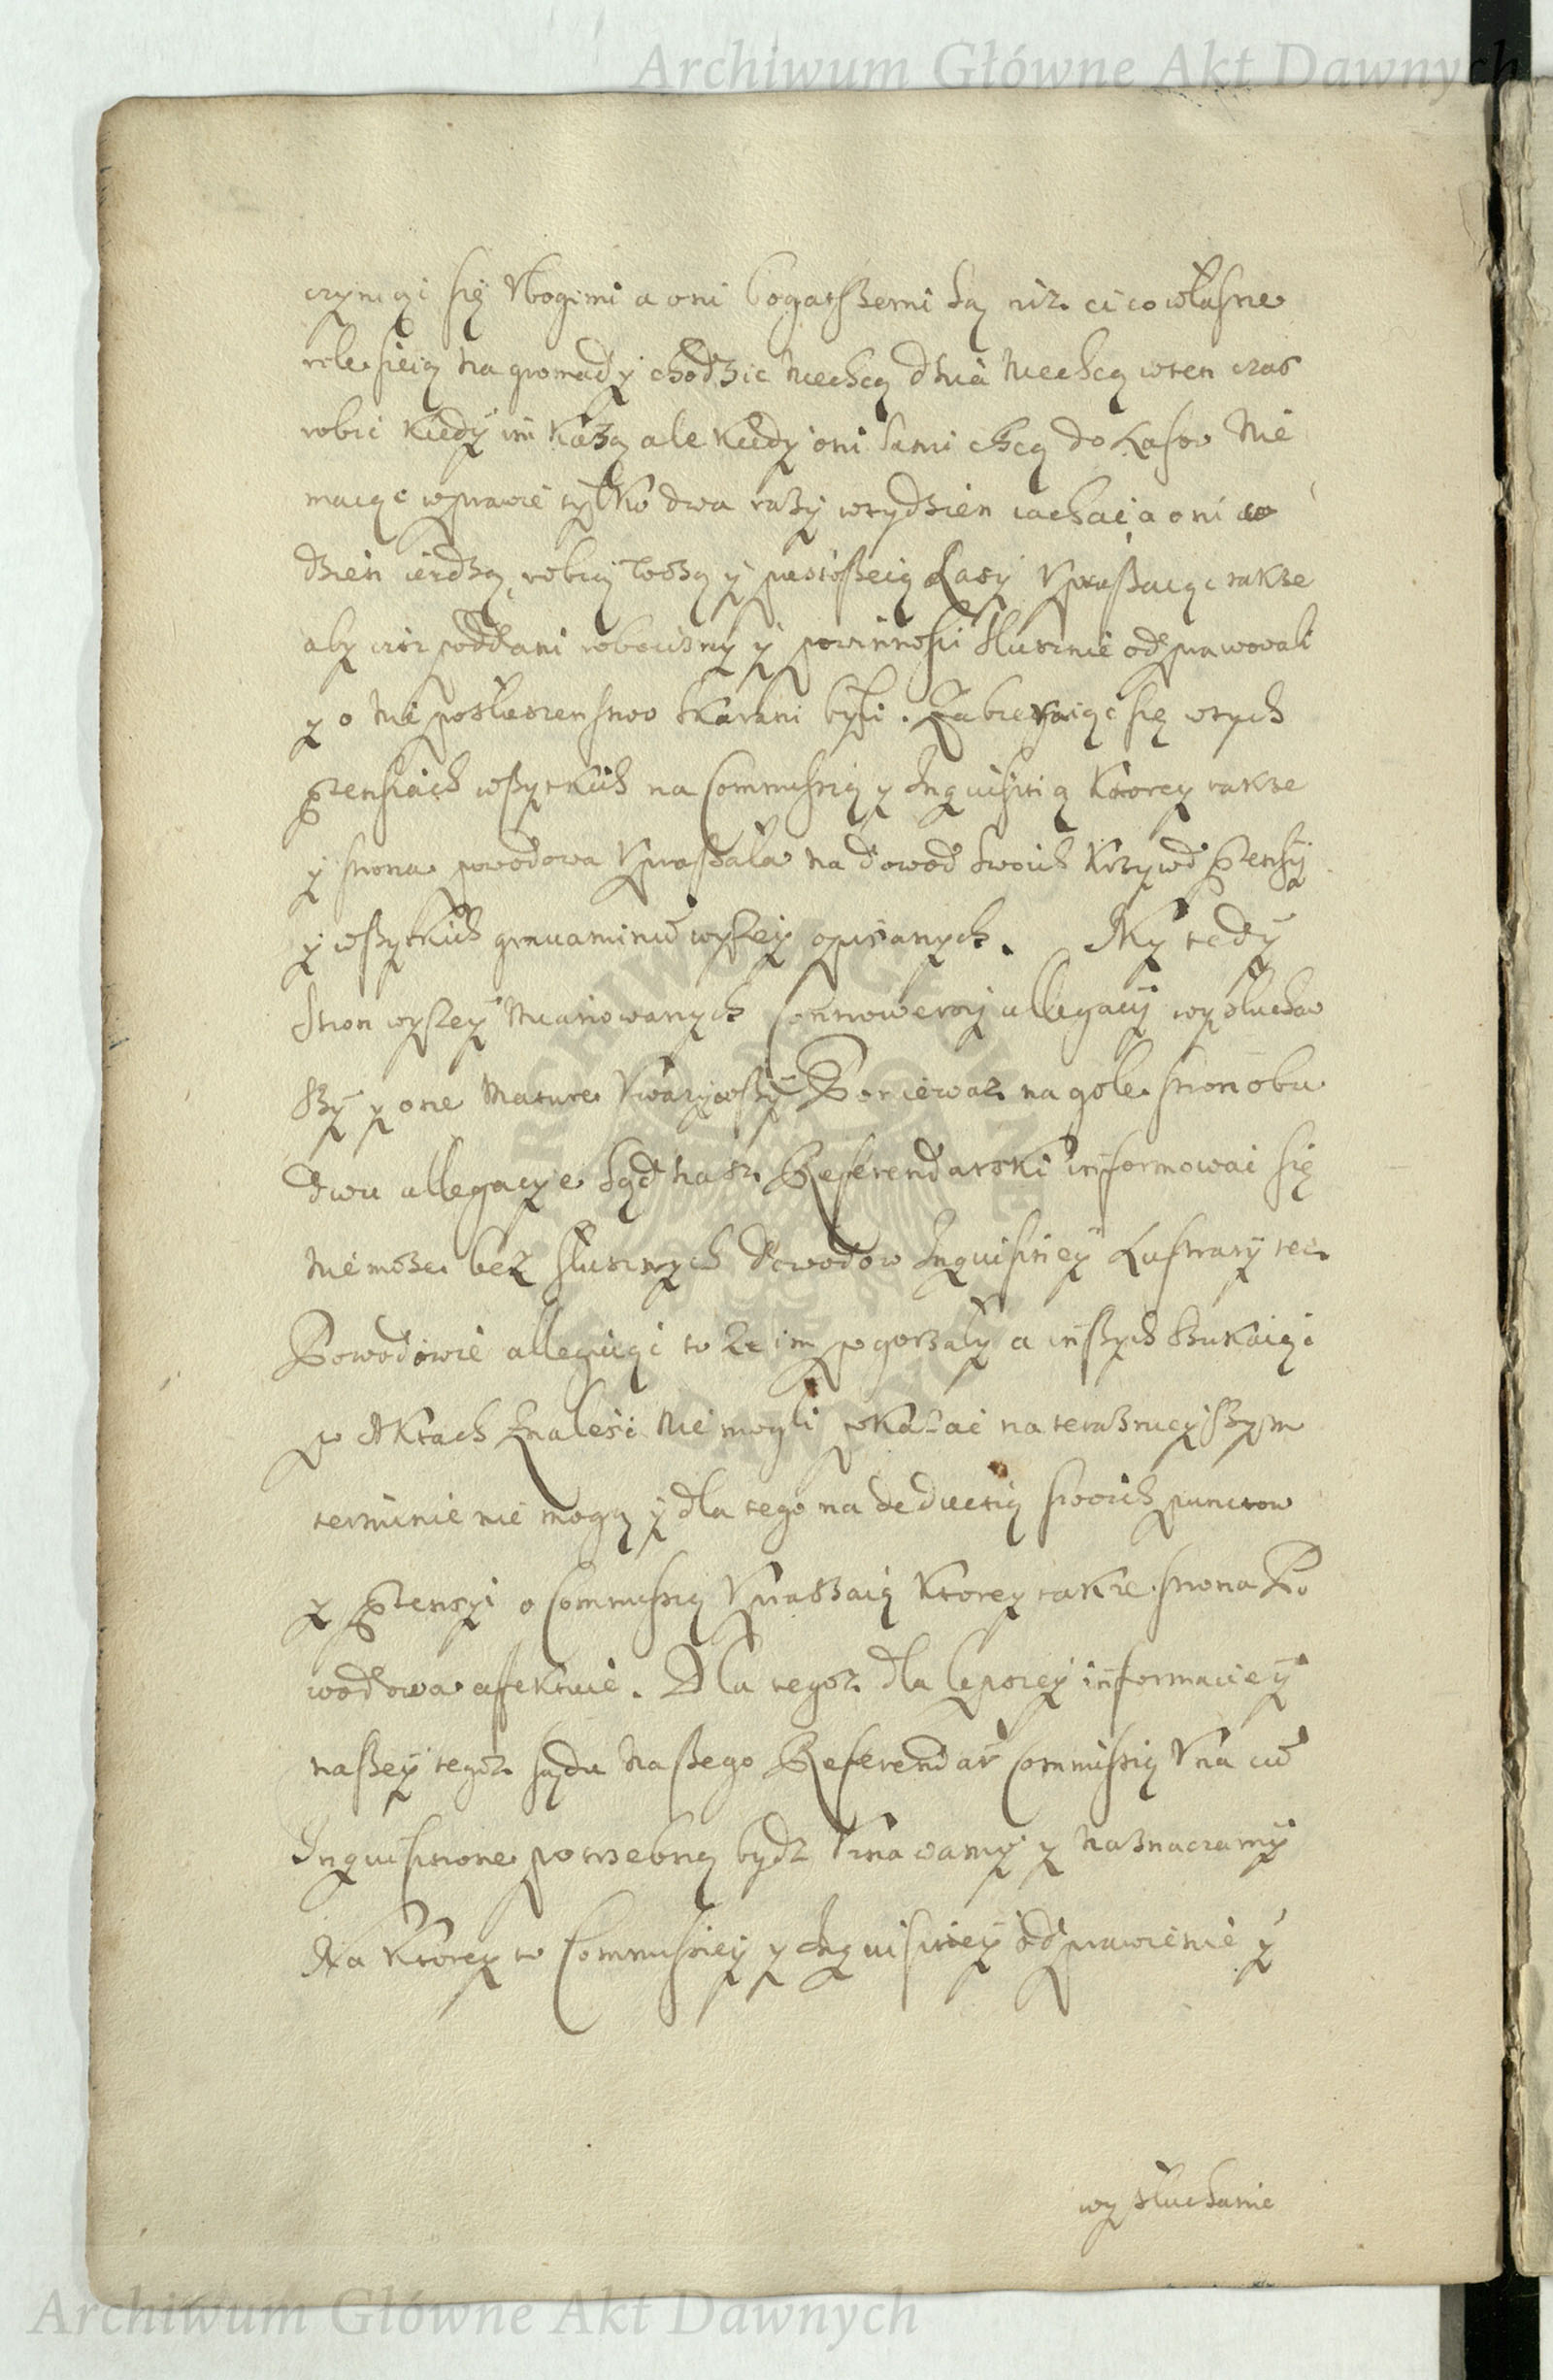 Archiwum Główne Akt Dawnych
czyniąc się Vbogimi a oni bogatszemi są niz ci co własne
role sieią na gromady chodzic niechcą dnia niechcą wten czas
robic kiedy im każą ale kiedy oni sami chcą do Lasow nie
maiąc wprawie tylko dwa razy wtydzien iachac a oni co
dzien ieżdżą robią wożą y pustoszeią Lasy Vpraszaiąc takze
aby ciż poddani robocizny y powinnosci słusznie odprawowali
y o nieposłuszenstwo skarani byli. Zabieraiąc się wtych
ꝑtensiach wszytkich na Commissią y Inquisitią ktorey takze
y strona powodowa Vpraszała na dowod swoich krzywd ꝑtensij
y wszytkich grauaminu wyszey opisanych. My tedy
stron wyszey mianowanych Controwersij allegacij wysłuchaw
szy y one mature Vwazywszy Poniewaz na gołe stron obu
dwu allegacye sąd nasz Referendarski informowac się
nie moze bez słusznych dowodow Inquisitiey Lustracij tec
Powodowie alleguiąc to ze im pogorzały a inszych szukaiąc
po Aktach znalesc nie mogli pokazac na teraznieyszym
terminie nie mogą y dla tego na deductią swoich punctow
y ꝑtensyi o Commissią Vpraszaią ktorey takze strona Po
wodowa afektuie. Dla tegoz dla lepszey informaciey
naszey tegoz sądu naszego Referendar Commissią Vna cu
Inquisitione potrzebną bydz Vznawamy y naznaczamy
Na ktorey to Commissiey y Inquisitiey odprawienie y
wysłuchanie
Archiwum Główne Akt Dawnych